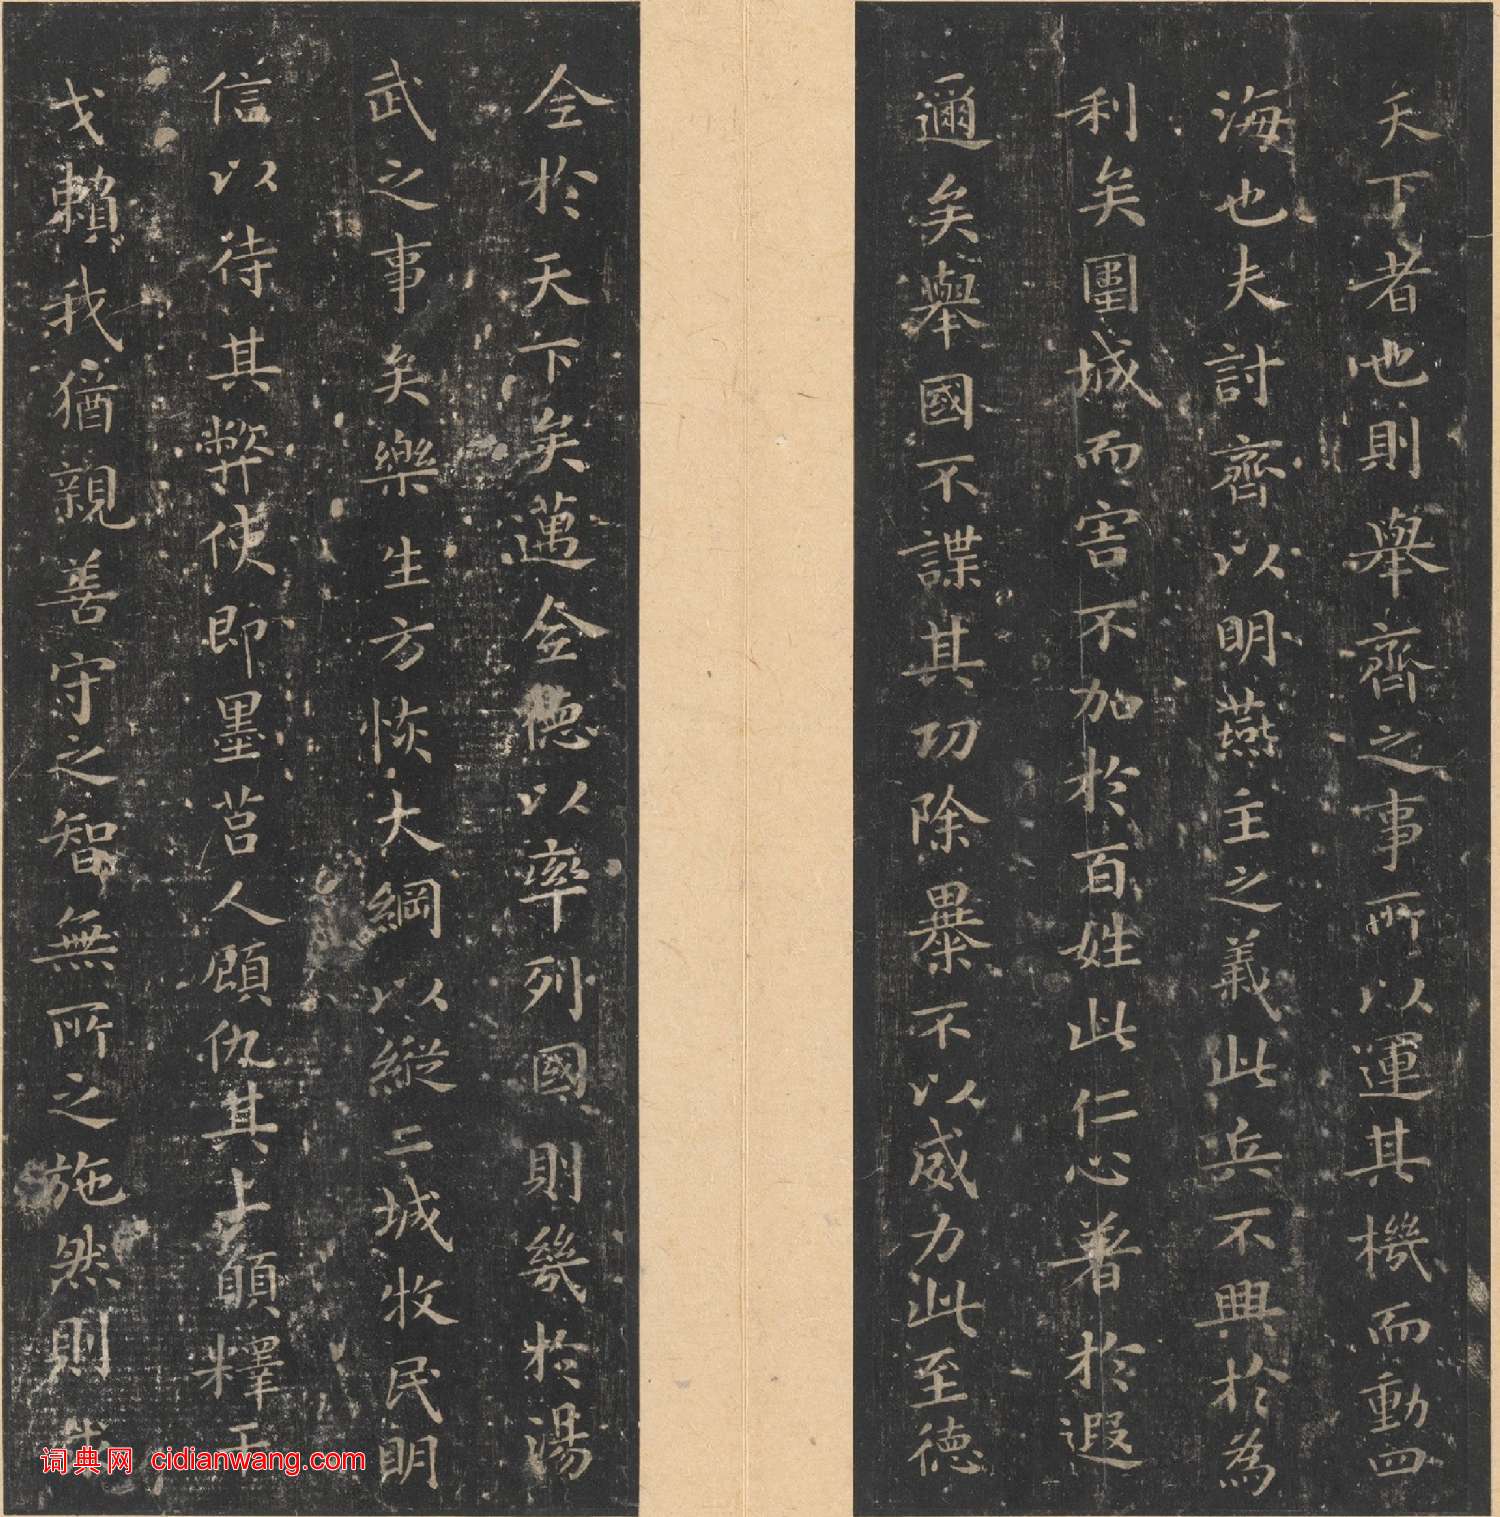 天下者也則舉齊之事所以運其機而動四
海也夫討齊以明燕主之義此兵不興於為
利矣圍城而害不加於百姓此仁心著於遐
邇矣舉國不謀其功除暴不以威力此至德
全於天下矣邁全德以率列國則幾於湯
武之事矣樂生方恢大綱以縱二城收民明
信以待其弊使即墨莒人顧仇其上願釋干
戈賴我猶親善守之智無所之施然則求
词典网 cidianwang.com